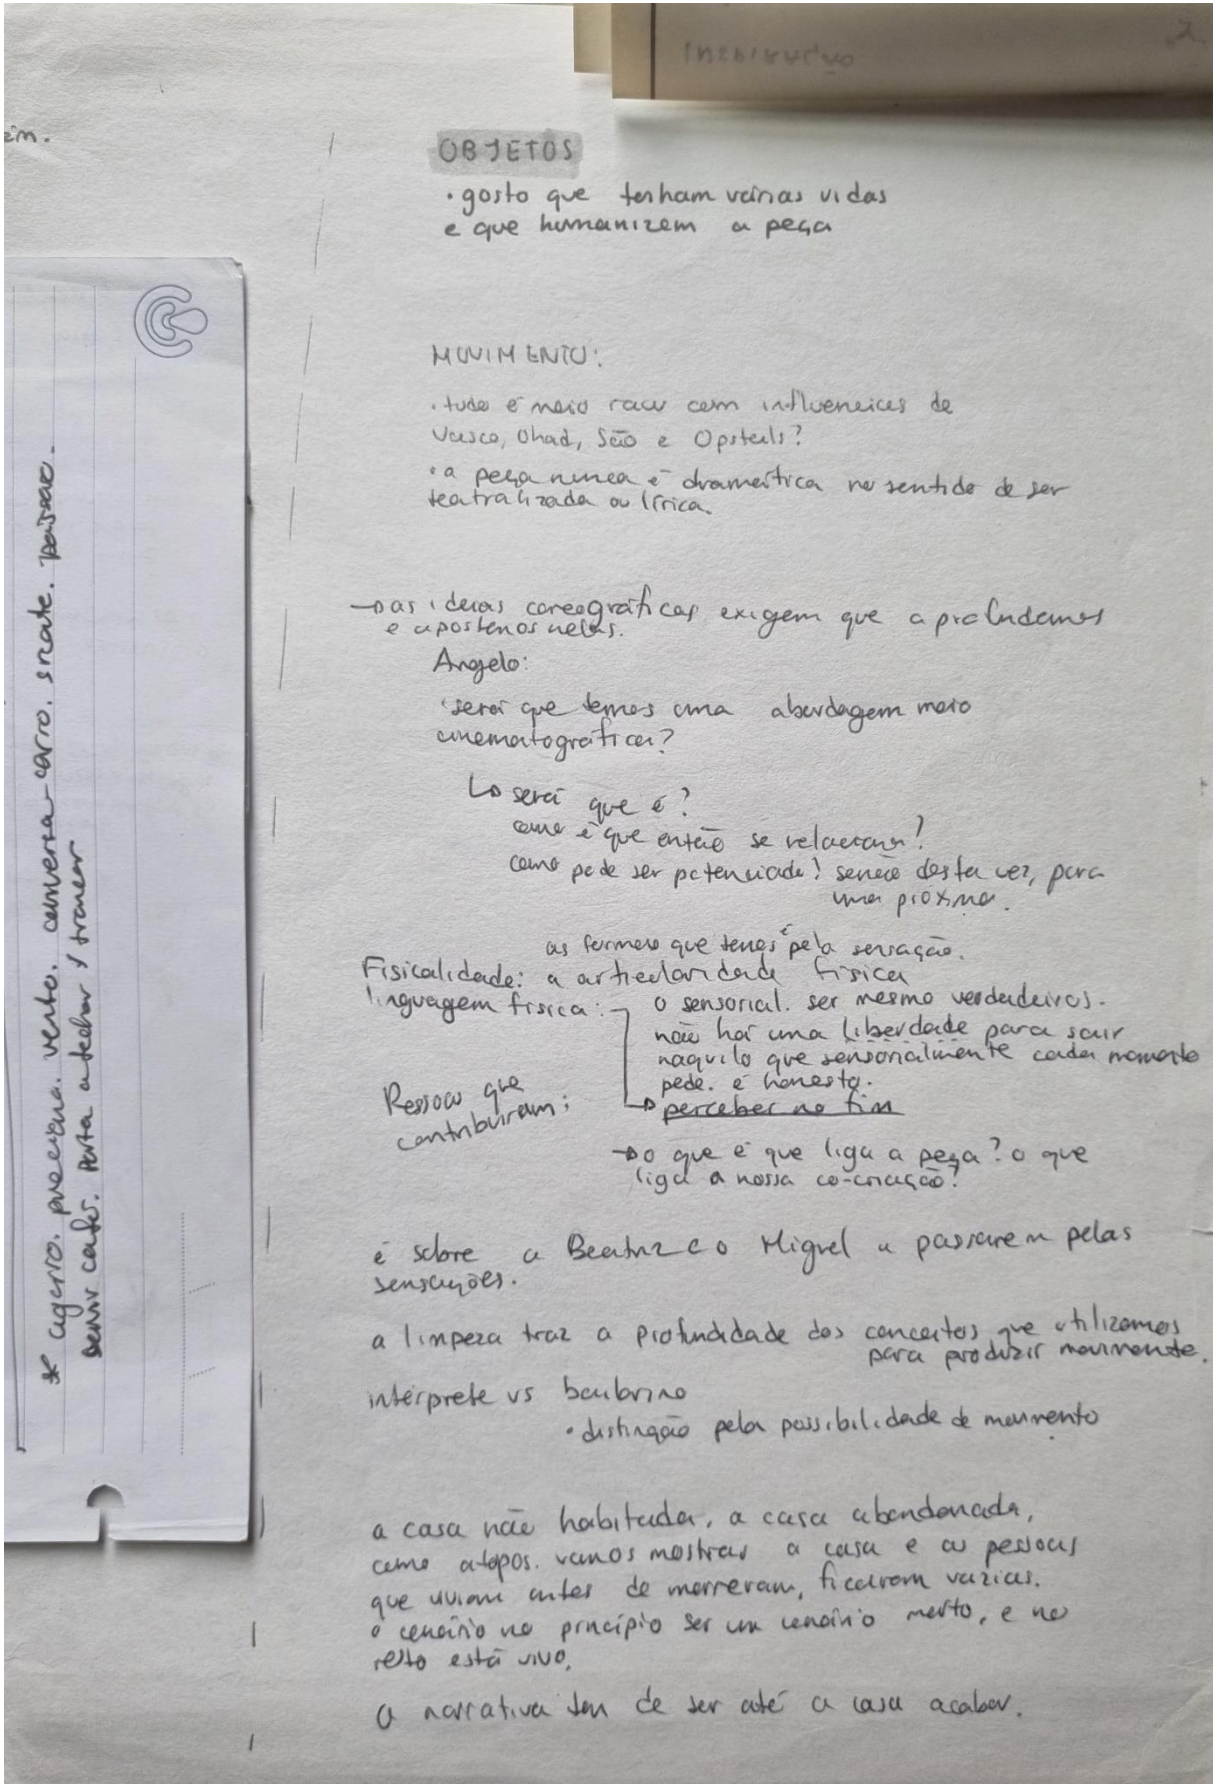 zim.
OBJETOS
· gosto que tenham várias vidas
e que humanizem a peça
MOVIMENTO:
· tudo é meio raw com influências de
Vasco, Ohad, São e
· a peça nunca é dramática no sentido de ser
teatralizada ou lírica.
→ as ideias coreográficas exigem que aprofundemos
e apostemos nelas.
Angelo:
· será que temos uma abordagem meio
cinematográfica?
↳ será que é?
como é que então se relacionam?
como pode ser potenciado? senão desta vez, para
uma próxima.
as formas que temos é pela sensação.
Fisicalidade: a articularidade física
linguagem física:
o sensorial. ser mesmo verdadeiros.
não há uma liberdade para sair
naquilo que sensorialmente cada momento
pede. é honesto.
→ perceber no fim
Pessoas que
contribuíram:
→ o que é que liga a peça? o que
liga a nossa co-criação?
é sobre a Beatriz e o Miguel a passarem pelas
sensações.
a limpeza traz a profundidade dos conceitos que utilizamos
para produzir movimento.
intérprete vs bailarino
· distinção pela possibilidade de movimento
a casa não habitada, a casa abandonada,
como atopos. vamos mostrar a casa e as pessoas
que viviam antes de morreram, ficaram vazias.
o cenário no princípio ser um cenário morto, e no
resto está vivo.
a narrativa tem de ser até a casa acabar.
* cigarro. vento. conversa-carro.
servir cafés. Porta a fechar / trancar